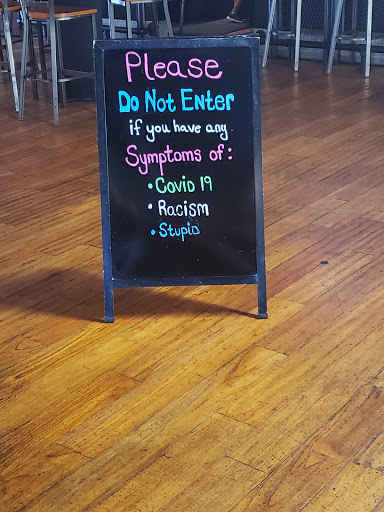 Please
Do Not Enter
if you have any
Symptoms of:
• Covid 19
• Racism
• Stupid